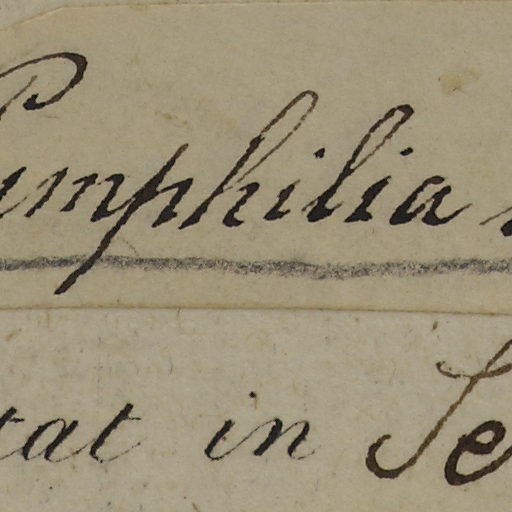 Pumphilia
tat in Se